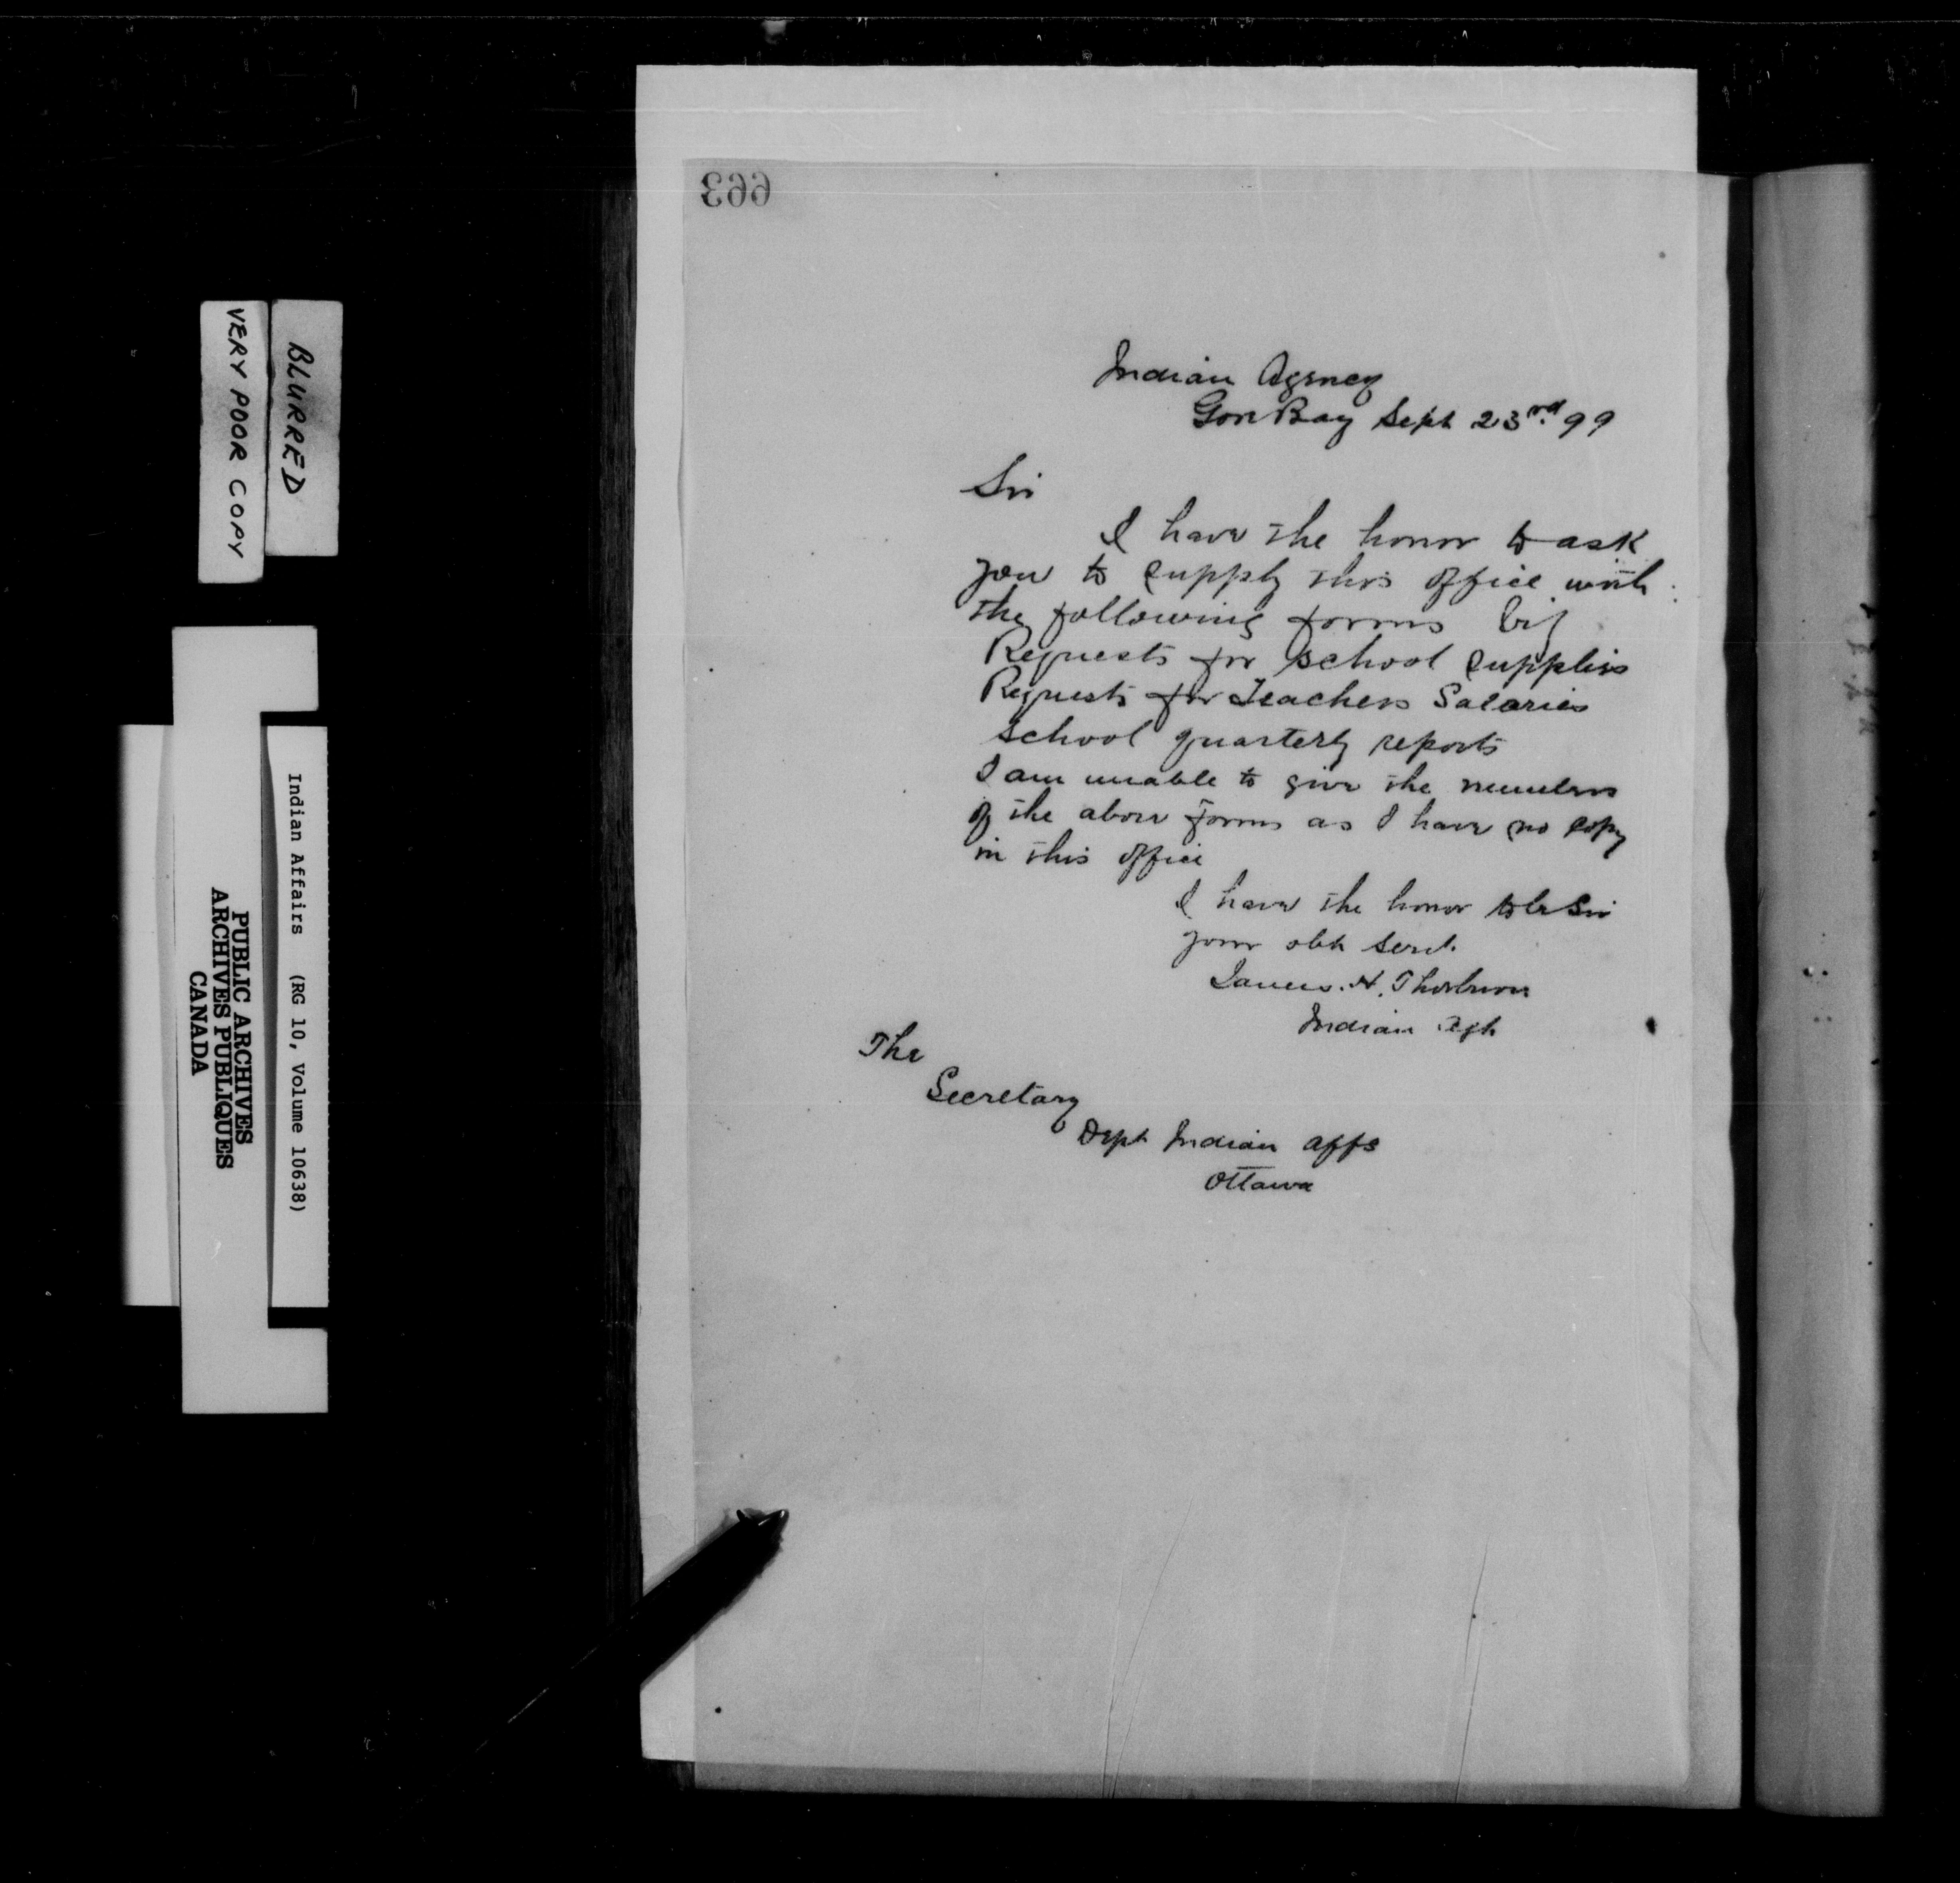 663
Indian Agency
Gore Bay Sept 23rd. 99
Sir
I have the honor to ask
you to supply this office with
the following forms viz
Requests for school supplies
Requests for Teachers Salaries
School quarterly reports
I am unable to give the numbers
of the above forms as I have no copy
in this office
I have the honor to be Sir
your obt Servt.
James. H. Thorburn
Indian Agt
The
Secretary
Dept Indian Affs
Ottawa
BLURRED
VERY POOR COPY
Indian Affairs (RG 10, Volume 10638)
PUBLIC ARCHIVES
ARCHIVES PUBLIQUES
CANADA